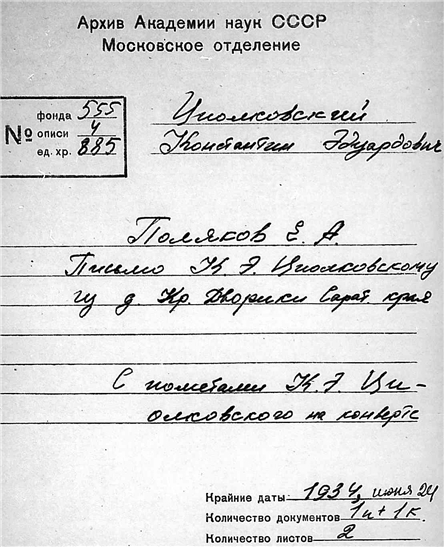 Архив Академии наук СССР
Московское отделение
№
фонда 555
описи 4
ед. хр. 885
Циолковский
Константин Эдуардович
Поляков Е. А.
Письмо К. Э. Циолковскому
из д. Кр. Дворики Сарат. края
С пометами К. Э. Ци-
олковского на конверте
Крайние даты 1934, июня 24
Количество документов 1п + 1к.
Количество листов 2